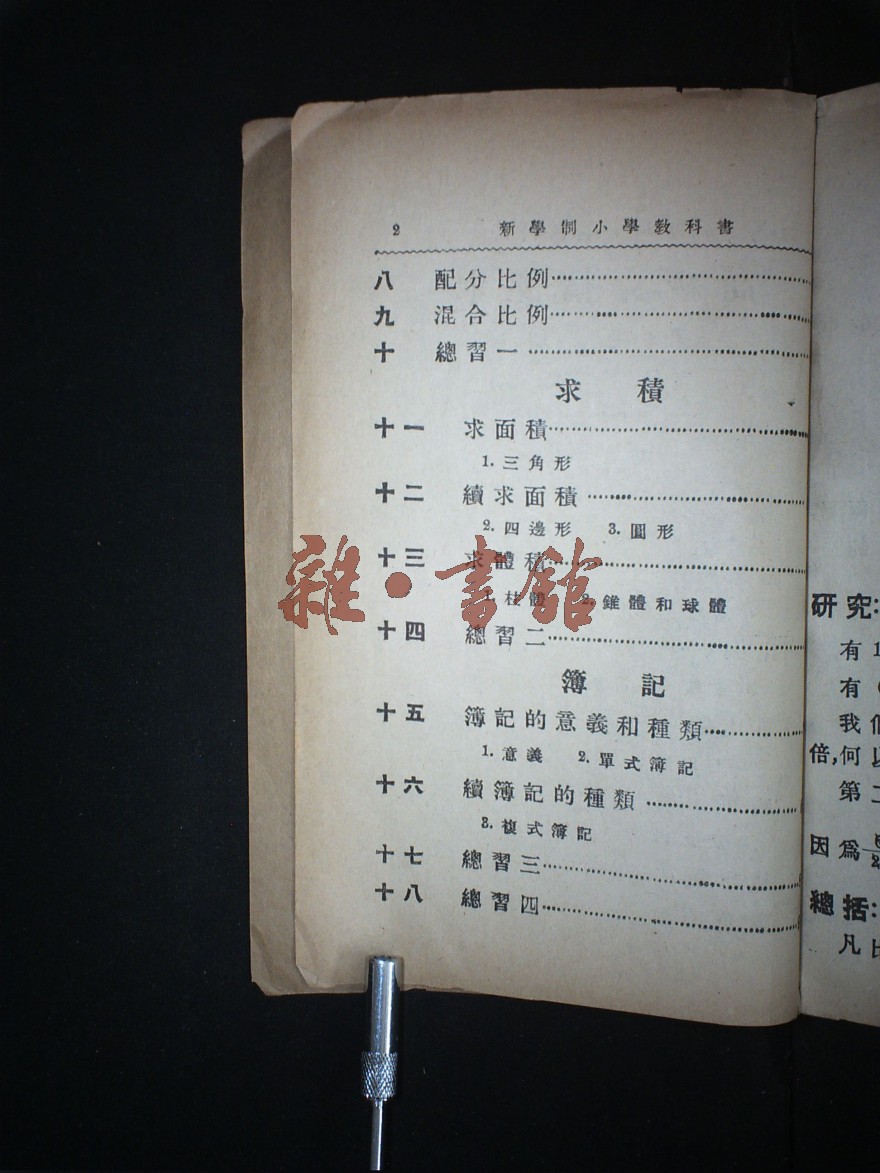 2 新學制小學教科書
八 配分比例
九 混合比例
十 總習一
求積
十一 求面積
1. 三角形
十二 續求面積
2. 四邊形 3. 圓形
十三 求體積
1. 柱體 2. 錐體和球體
十四 總習二
簿記
十五 簿記的意義和種類
1. 意義 2. 單式簿記
十六 續簿記的種類
3. 複式簿記
十七 總習三
十八 總習四
雜·書館
研究:
有1
有
我
倍,何
第
因爲
總括:
凡